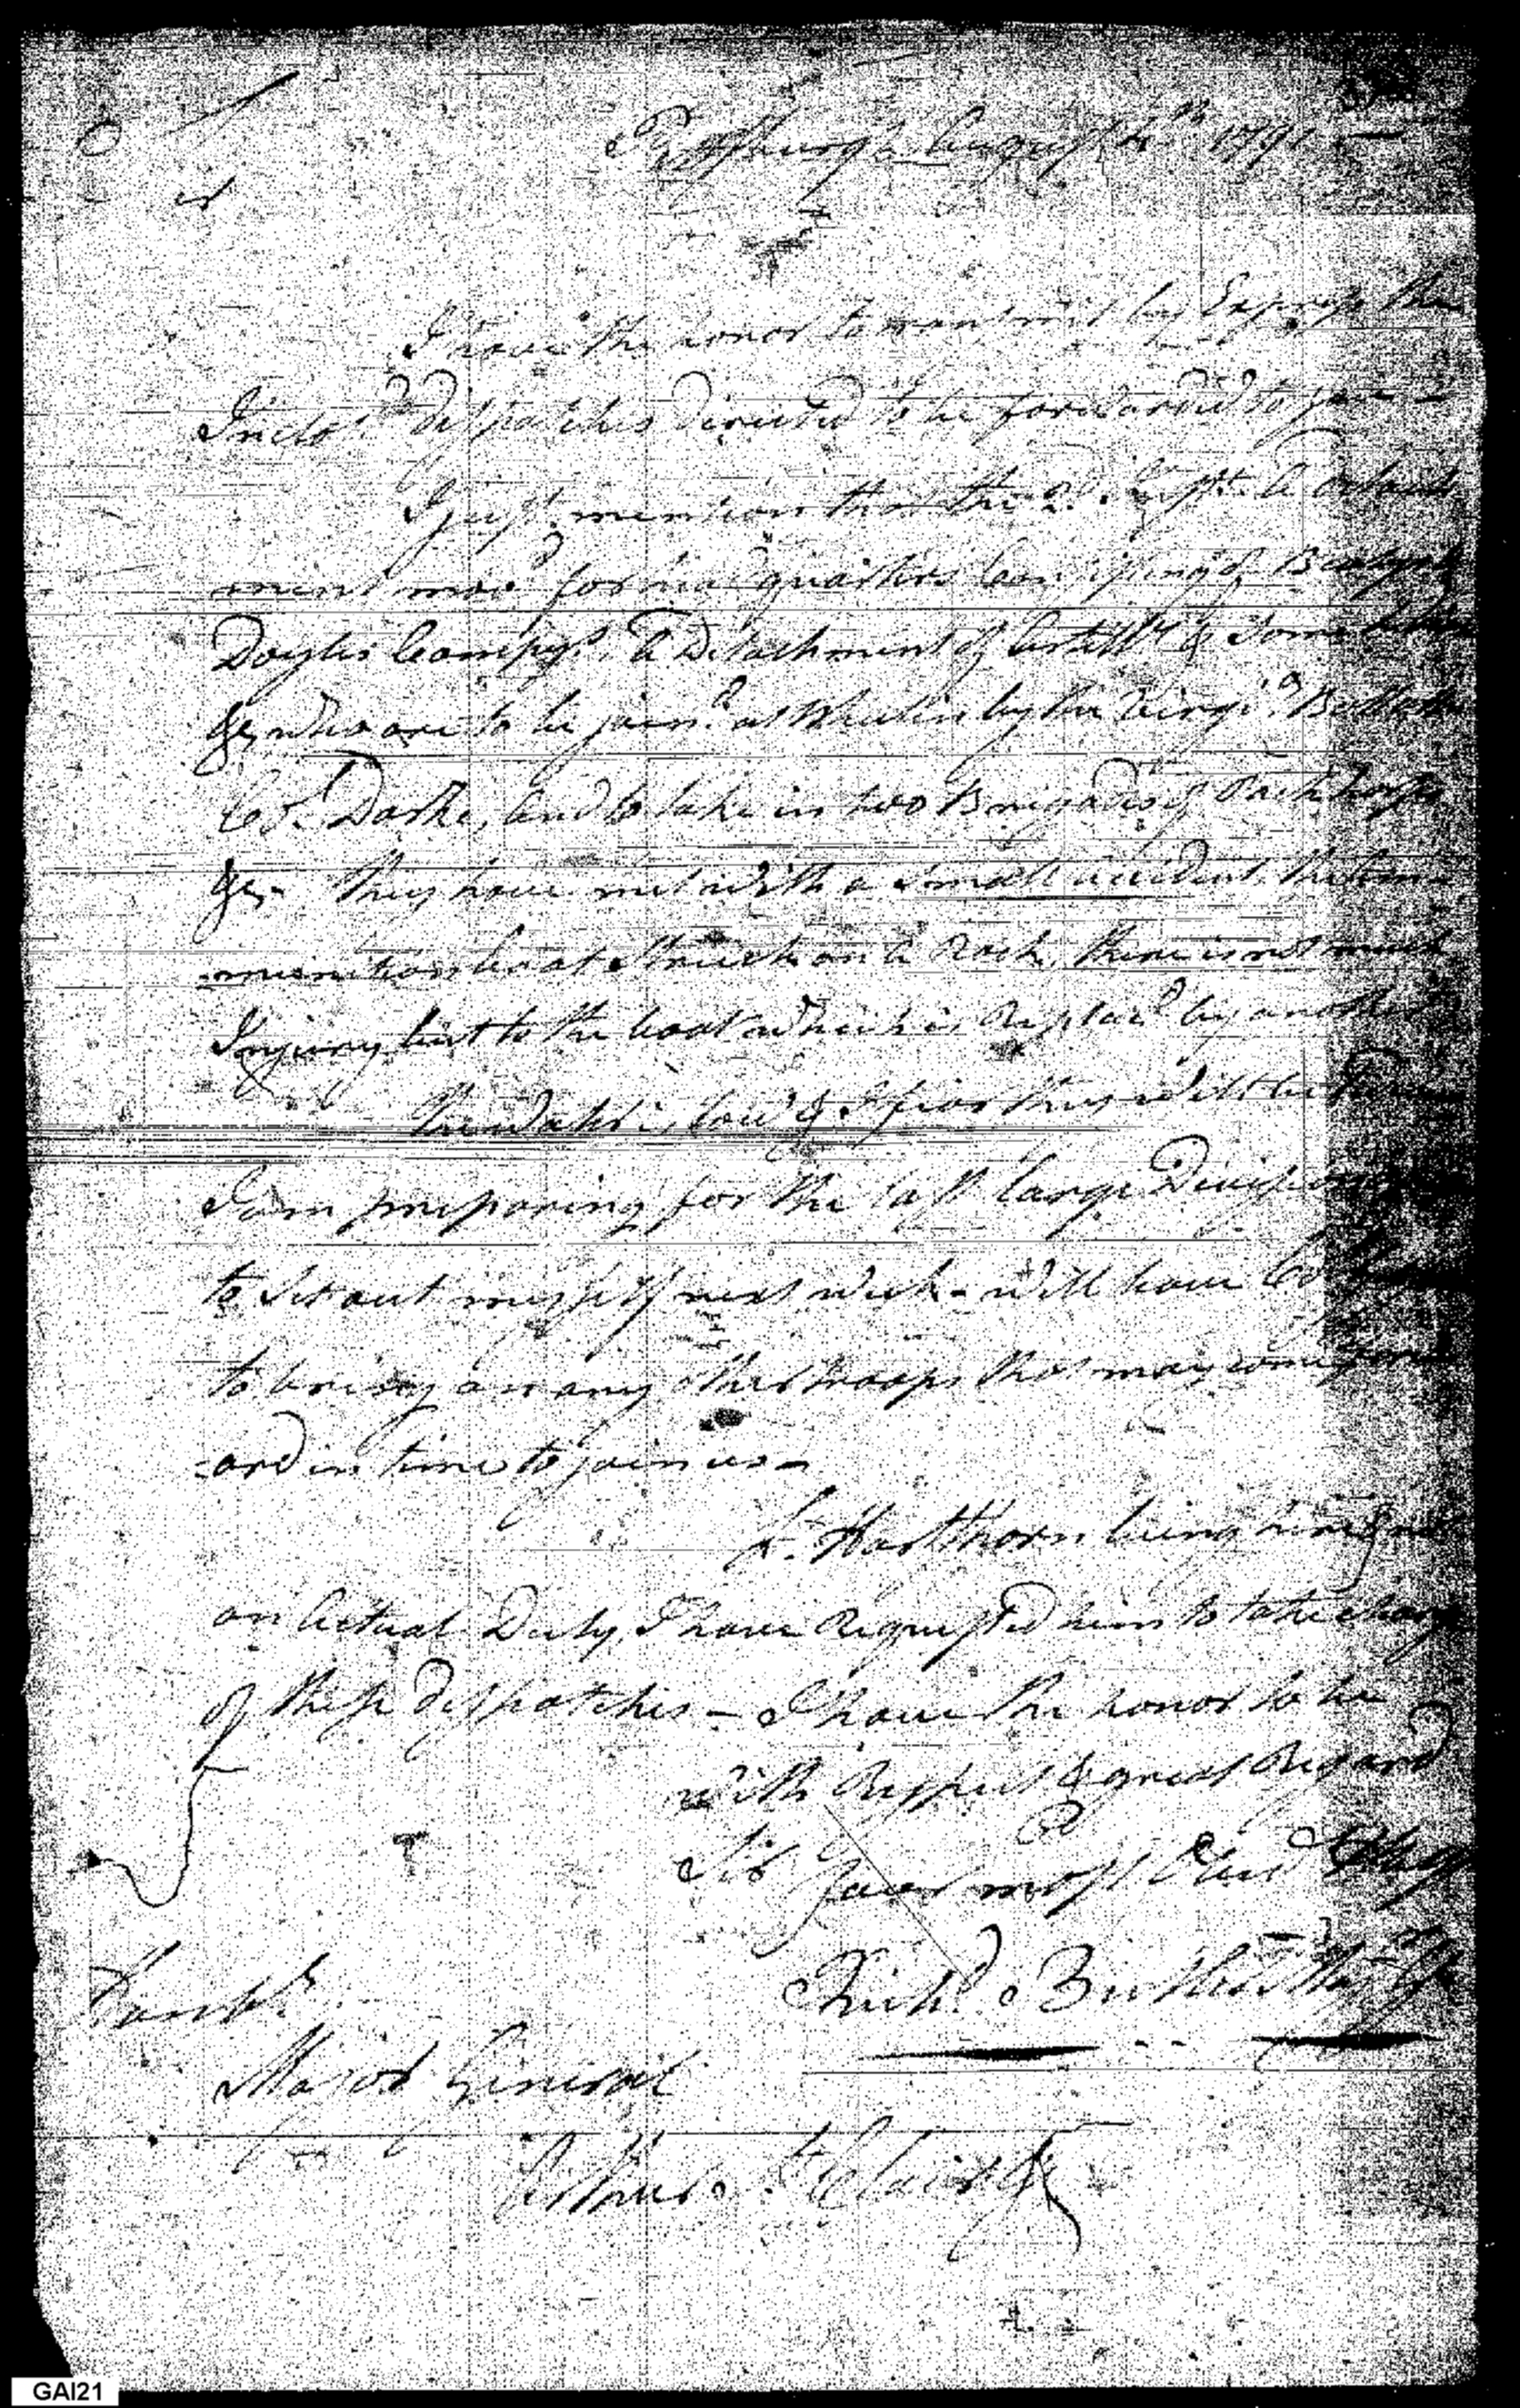 Pittsburgh August 4th 1791 —
Sir
I have the honor to transmit by Express the
Inclosd dispatches directed to be forwarded to you
I just mention that the 2d Inst. A detach
ment movd for head quarters Consisting of
Doyles Compys. A Detachment of Artilly & some
&c, who are to be joind at Wheelin by the Virgia Battalion
Col Darke, And to take in two Brigades of Pack horses
&c — they have met with a small accident, the Am=
=munition boat Struck on a Rock, there is not much
Injury but to the boat which is Replacd by another
the Water is low & I fear they will be
I am preparing for the last large Division
to Set out myself next week — will leave Col
to bring on any other troops that may come forw
=ard in time to join us —
Lt. Hartthorn being here & not
on Actual Duty, I have Requested him to take charge
of these dispatches — I have the honor to be
with Respect & great Regard
Sir Your most Obed
Richd. Butler Maj Gl
Honble.
Major General
Arthur St Clair
GAI21